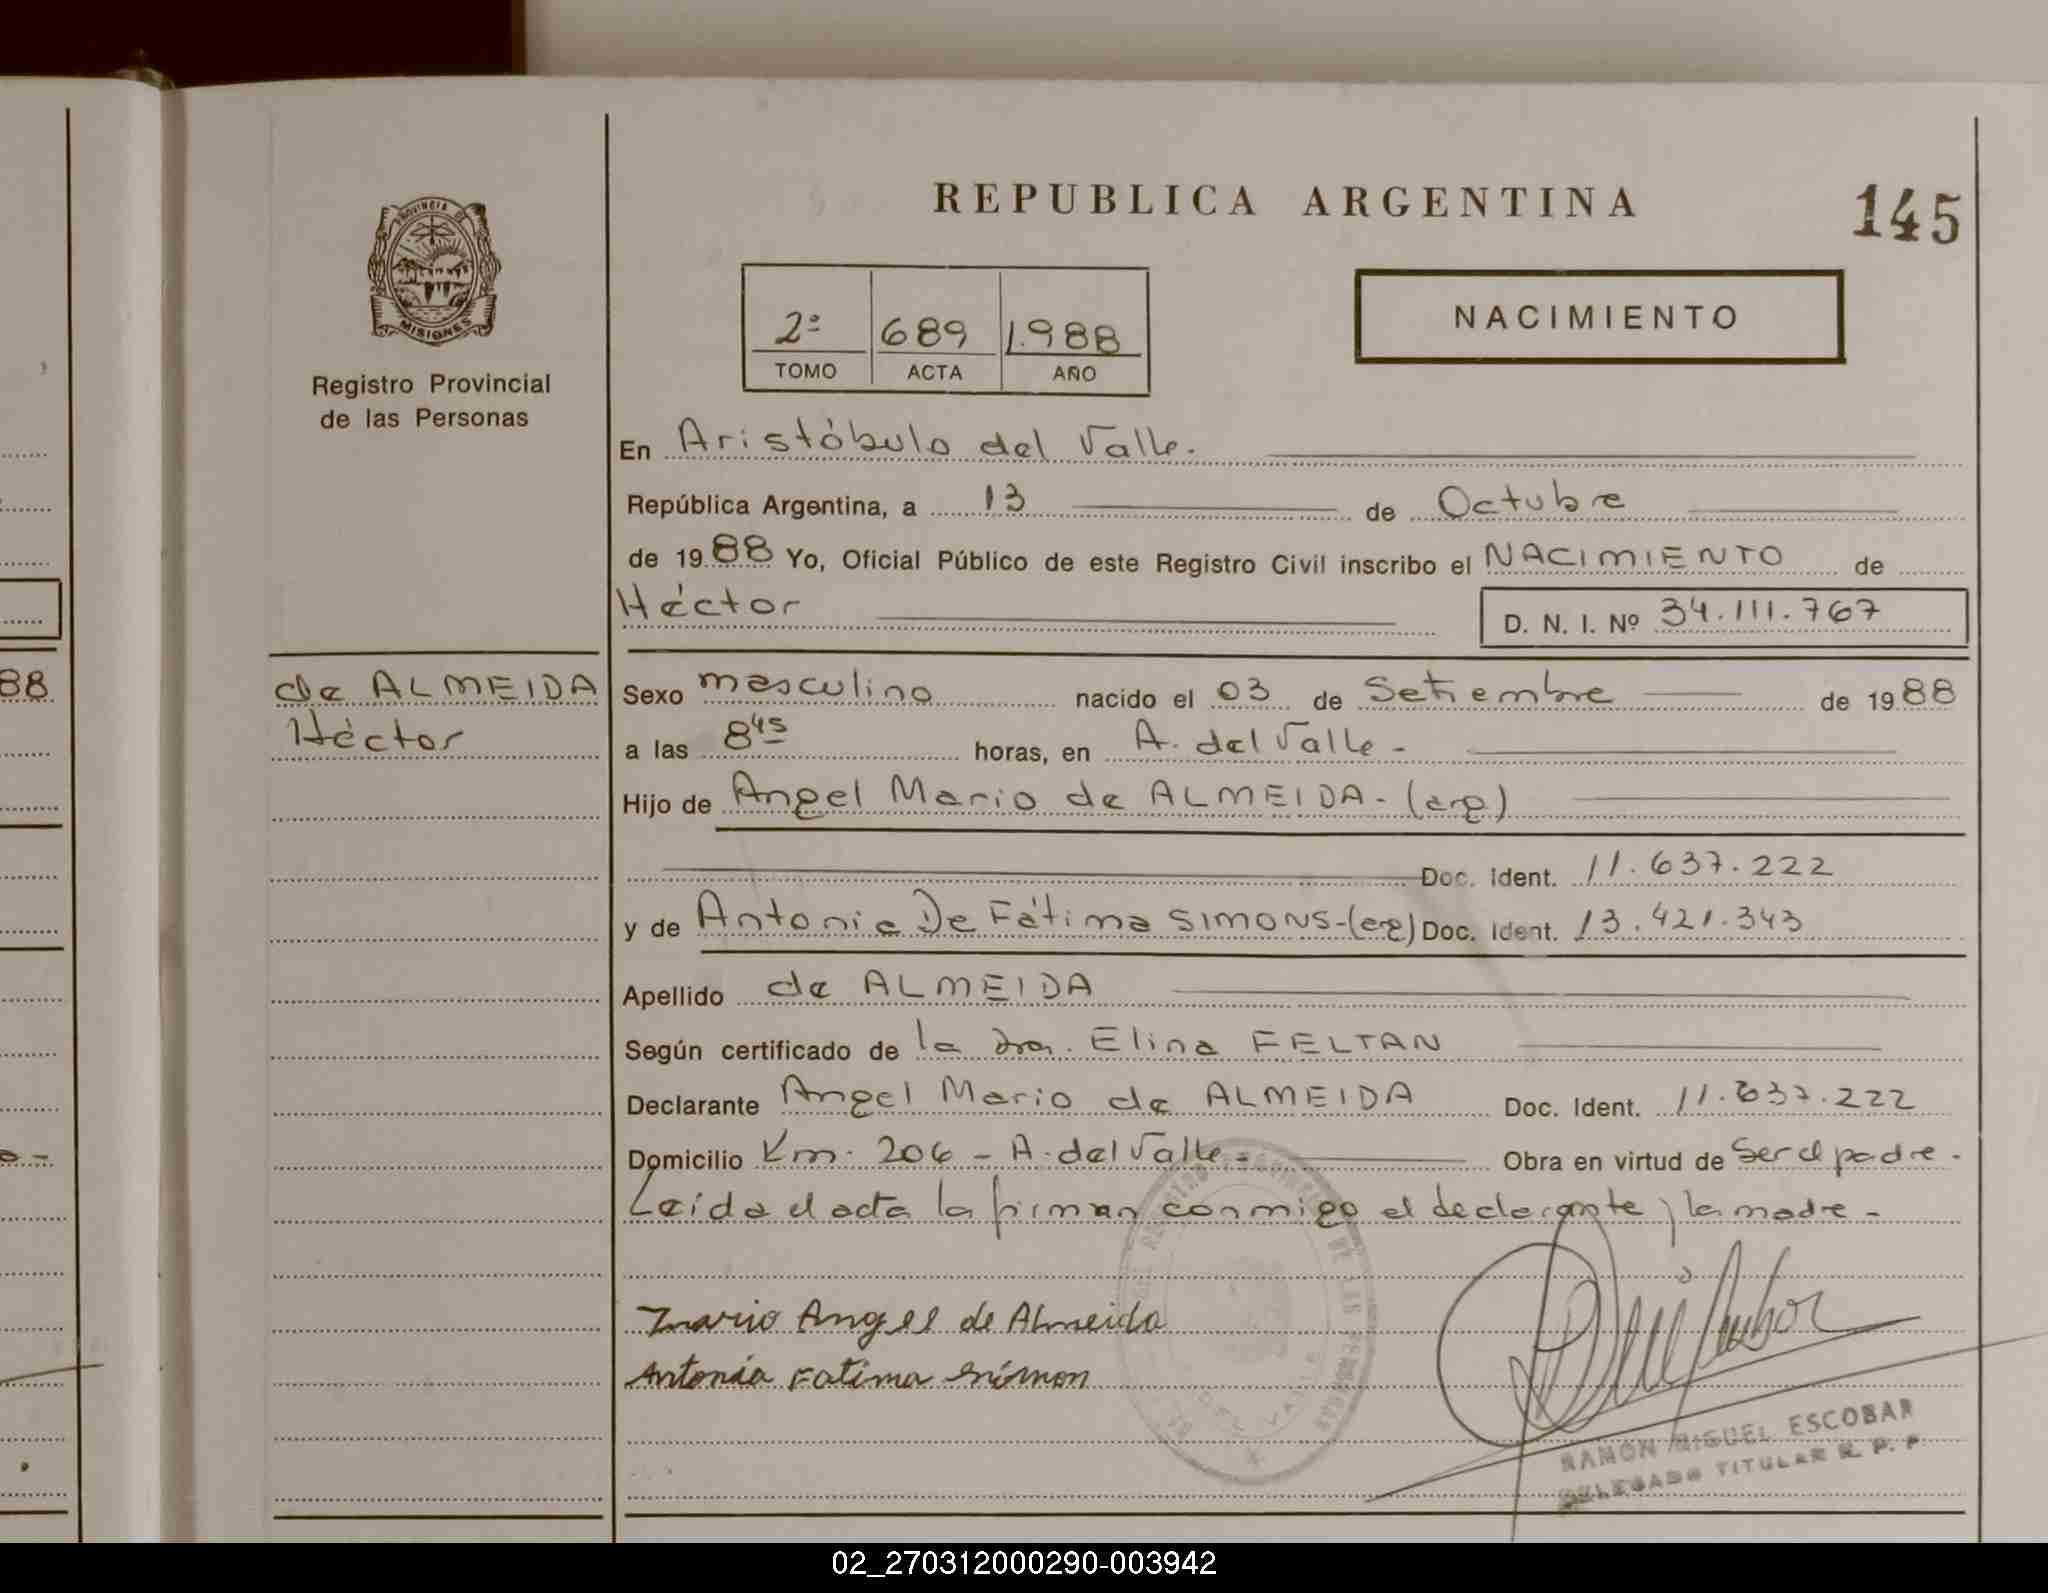 REPUBLICA ARGENTINA
145
PROVINCIA DE
MISIONES
Registro Provincial
de las Personas
2º 689 1.988
TOMO ACTA AÑO
NACIMIENTO
En Aristóbulo del Valle.
República Argentina, a 13 de Octubre
de 1988 Yo, Oficial Público de este Registro Civil inscribo el NACIMIENTO de
Héctor D. N. I. Nº 34.111.767
88.
de ALMEIDA
Héctor
Sexo masculino nacido el 03 de Setiembre de 1988
a las 8 45 horas, en A. del Valle -
Hijo de Angel Mario de ALMEIDA - (arg)
Doc. Ident. 11.637.222
y de Antonia De Fátima SIMONS - (arg) Doc. Ident. 13.421.343
Apellido de ALMEIDA
Según certificado de la Dra. Elina FELTAN
Declarante Angel Mario de ALMEIDA Doc. Ident. 11.637.222
Domicilio Km. 206 - A. del Valle - Obra en virtud de Ser el padre.
Leída el acta la firman conmigo el declarante y la madre -
Mario Angel de Almeida
Antonia Fatima Simon
RAMON MIGUEL ESCOBAR
DELEGADO TITULAR R. P. P.
02_270312000290-003942